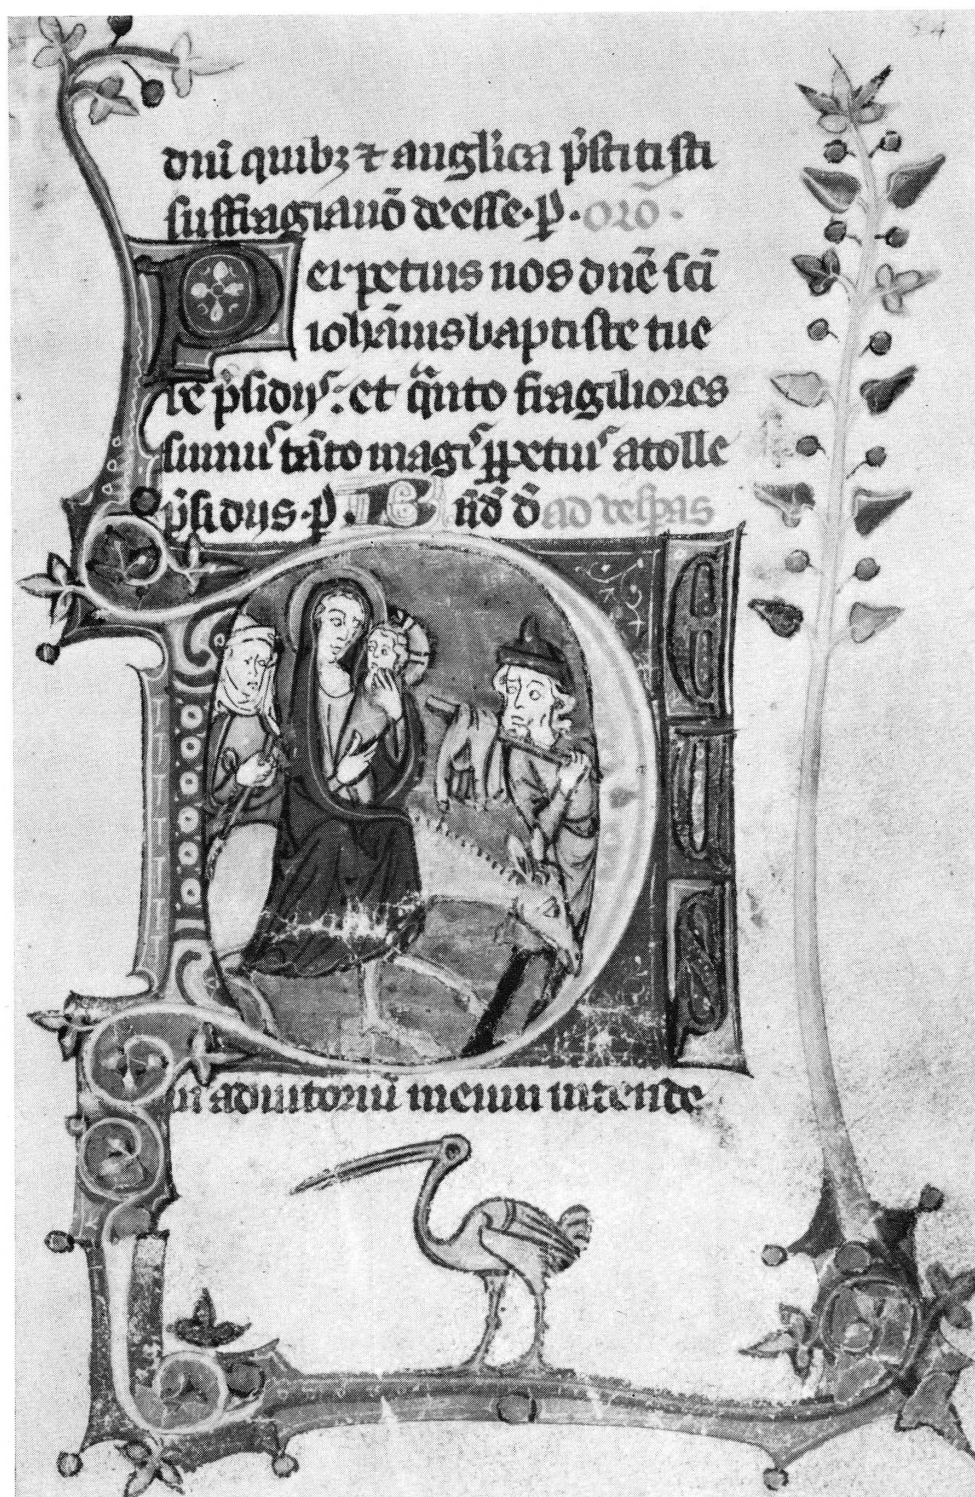 dnī quibꝫ ⁊ anglica p̄stitisti
suffragia nō deesse · P̄ · orō ·
Perpetuis nos dn̄e sc̄i
iohānis baptiste tue
re p̄sidijs : et q̄nto fragiliores
sumus tāto magis ꝑpetuis atolle
p̄sidijs · P̄ · n̄d d̄ ad vesꝑas
DEUS
in adiutoriū meum intende